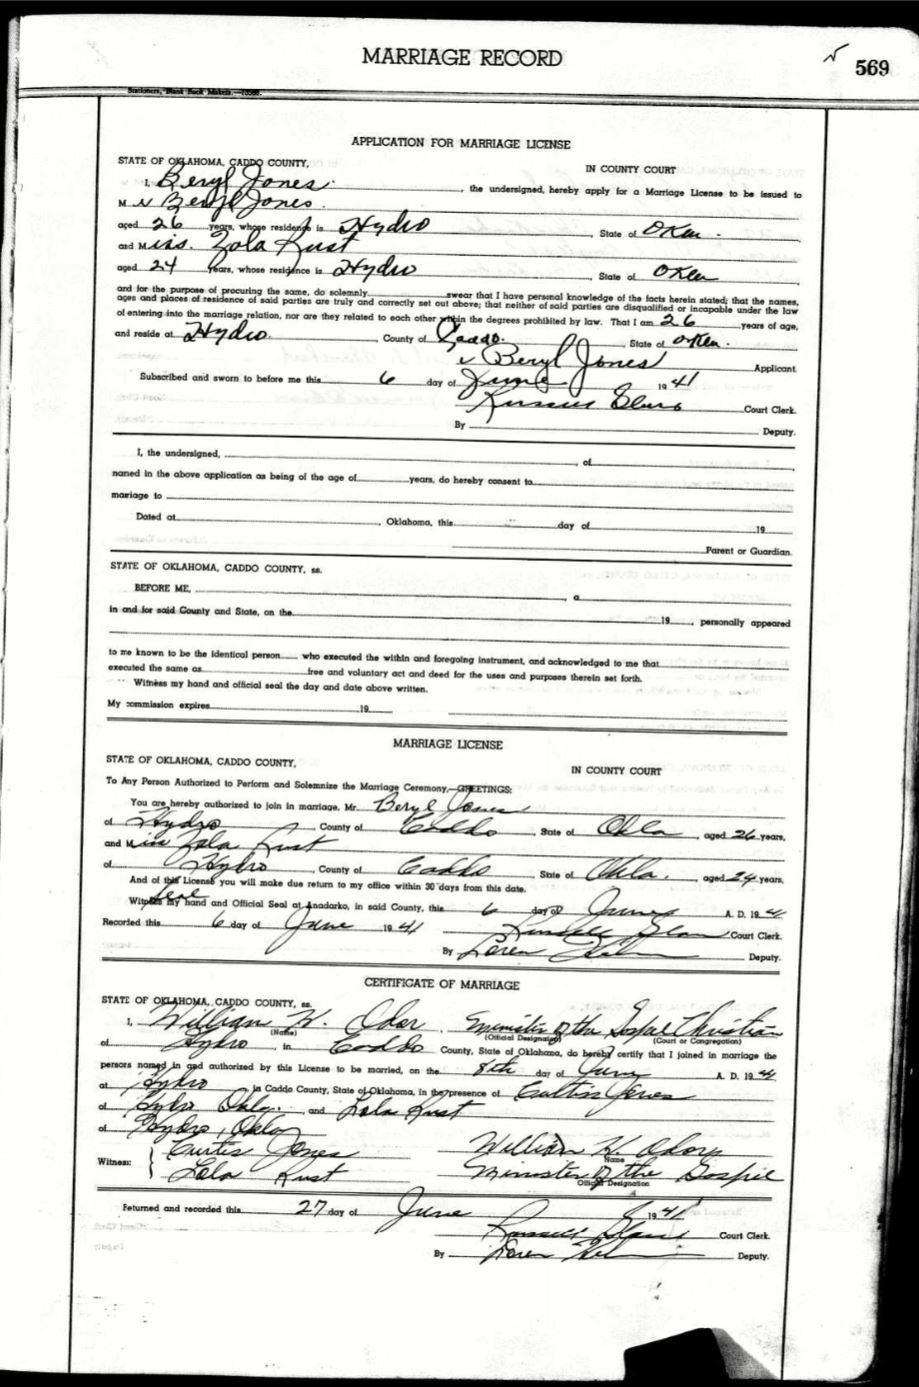 MARRIAGE RECORD
569
Stationers, Blank Book Makers.
APPLICATION FOR MARRIAGE LICENSE
STATE OF OKLAHOMA, CADDO COUNTY,
IN COUNTY COURT
I, Beryl Jones, the undersigned, hereby apply for a Marriage License to be issued to
M r Beryl Jones
aged 26 years, whose residence is Hydro, State of Okla.
and Miss. Zola Rust
aged 24 years, whose residence is Hydro, State of Okla
and for the purpose of procuring the same, do solemnly swear that I have personal knowledge of the facts herein stated; that the names,
ages and places of residence of said parties are truly and correctly set out above; that neither of said parties are disqualified or incapable under the law
of entering into the marriage relation, nor are they related to each other within the degrees prohibited by law. That I am 26 years of age,
and reside at Hydro. County of Caddo. State of Okla.
Beryl Jones Applicant.
Subscribed and sworn to before me this 6 day of June 1941
Court Clerk.
By Deputy.
I, the undersigned, , of
named in the above application as being of the age of years, do hereby consent to
marriage to
Dated at , Oklahoma, this day of 19
Parent or Guardian.
STATE OF OKLAHOMA, CADDO COUNTY, ss.
BEFORE ME, , a
in and for said County and State, on the 19 , personally appeared
to me known to be the identical person who executed the within and foregoing instrument, and acknowledged to me that
executed the same as free and voluntary act and deed for the uses and purposes therein set forth.
Witness my hand and official seal the day and date above written.
My commission expires 19
MARRIAGE LICENSE
STATE OF OKLAHOMA, CADDO COUNTY,
IN COUNTY COURT
To Any Person Authorized to Perform and Solemnize the Marriage Ceremony,—GREETINGS:
You are hereby authorized to join in marriage, Mr. Beryl Jones
of Hydro, County of Caddo, State of Okla, aged 26 years,
and Miss Zola Rust
of Hydro, County of Caddo, State of Okla., aged 24 years,
And of this License you will make due return to my office within 30 days from this date.
Seal
Witness my hand and Official Seal at Anadarko, in said County, this 6 day of June A. D. 1941
Recorded this 6 day of June 1941 Court Clerk.
By Loren Deputy.
CERTIFICATE OF MARRIAGE
STATE OF OKLAHOMA, CADDO COUNTY, ss.
I, William H. Odor, Minister of the Gospel Christian
(Name) (Official Designation) (Court or Congregation)
of Hydro, in Caddo County, State of Oklahoma, do hereby certify that I joined in marriage the
persons named in and authorized by this License to be married, on the 8th day of June A. D. 1941
at Hydro in Caddo County, State of Oklahoma, in the presence of Curtis Jones
of Hydro Okla. and Lola Rust
of Hydro, Okla
Curtis Jones William H. Odor
Name
Witness: Lola Rust Minister of the Gospel
Official Designation
Returned and recorded this 27 day of June 1941
Court Clerk.
By Loren Deputy.